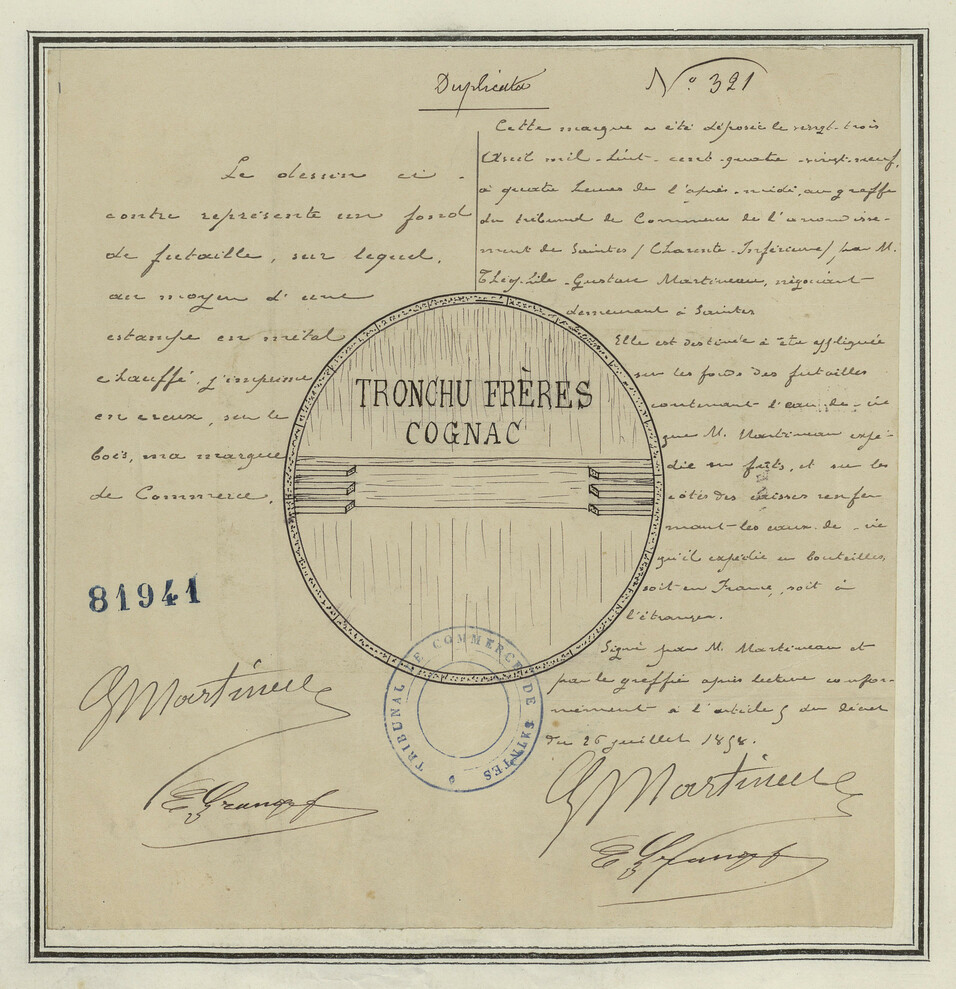 Duplicata
N° 321
Le dessin ci-
contre représente un fond
de futaille, sur lequel,
au moyen d'une
estampe en métal
chauffé, j'imprime
en creux, sur le
bois, ma marque
de Commerce.
81941
G Martineau
Cette marque a été déposée le vingt-trois
Avril mil-huit-cent-quatre-vingt-neuf,
à quatre heures de l'après-midi, au greffe
du tribunal de Commerce de l'arrondisse-
ment de Saintes / Charente-Inférieure / par M.
Gustave Martineau, négociant
demeurant à Saintes
Elle est destinée à être appliquée
sur les fonds des futailles
contenant l'eau-de-vie
que M. Martineau expé-
die en fûts, et sur les
côtés des caisses renfer
mant les eaux-de-vie
qu'il expédie en bouteilles,
soit en France, soit à
l'étranger.
Signé par M. Martineau et
par le greffier après lecture confor-
mément à l'article 5 du décret
du 26 juillet 1858.
G Martineau
TRONCHU FRÈRES
COGNAC
TRIBUNAL DE COMMERCE DE SAINTES